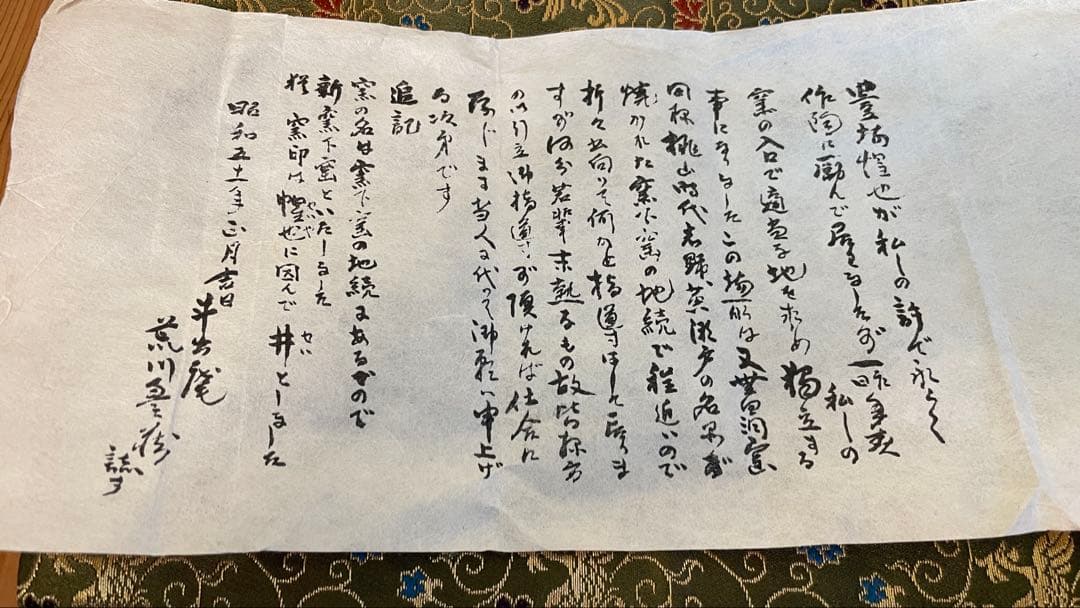 豊場惺也が私の許で永らく
作陶に励んで居りましたが 一昨年春 私の
窯の入口で適当な地を求め獨立する
事になりました この場所は 又世昌洞窯
同様桃山時代志野、黄瀬戸の名品が
焼かれた窯下窯の地続で程近いので
折々出向いて何かと指導はして居りま
すが何分若輩未熟なもの故皆様方
の御引立御指導が頂ければ仕合に
存じます 当人に代って御願い申上げ
る次第です
追記
窯の名は窯下窯の地続にあるので
新窯下窯といたしました
猶 窯印は惺也に因んで 井としました
せいや
せい
昭和五十一年正月吉日
斗出庵
荒川豊蔵
誌す